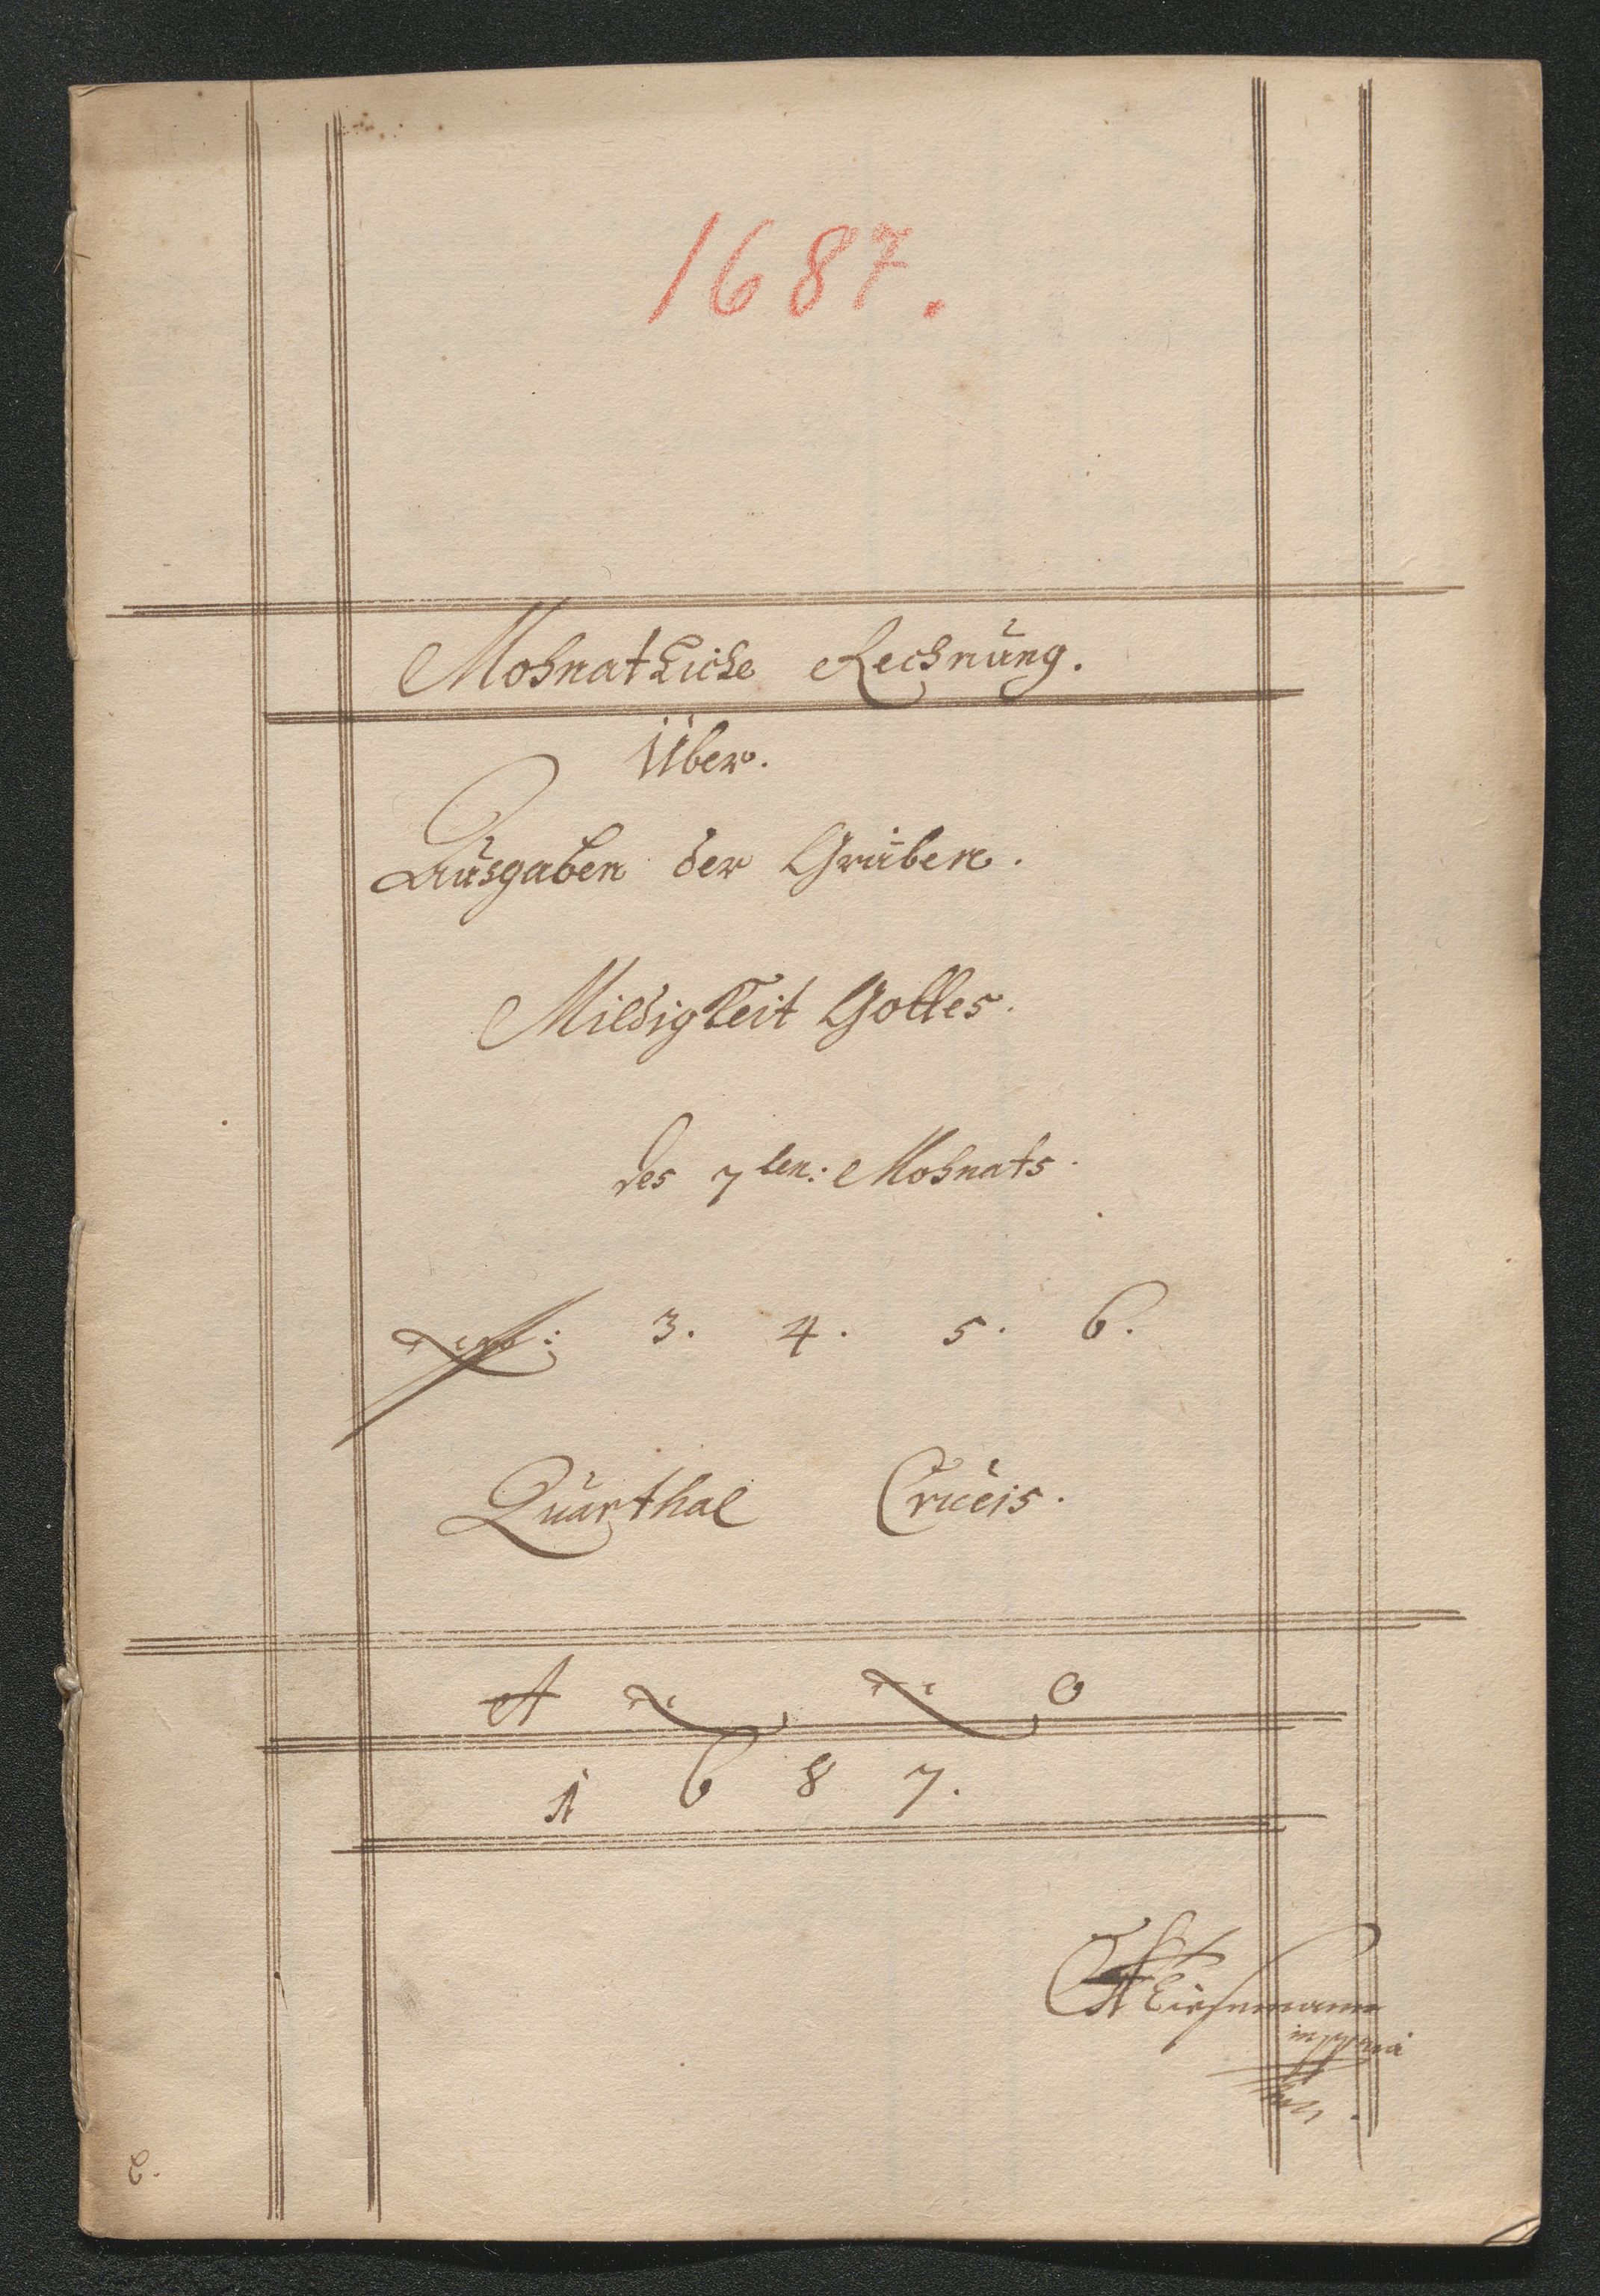 1687.
Mohnatliche Rechnung.
Über.
Ausgaben der Gruben.
Mildigkeit Gottes.
des 7ten: Mohnats.
3. 4. 5. 6.
Quarthal Crucis.
A n n o
1 6 8 7.
mppria
C.